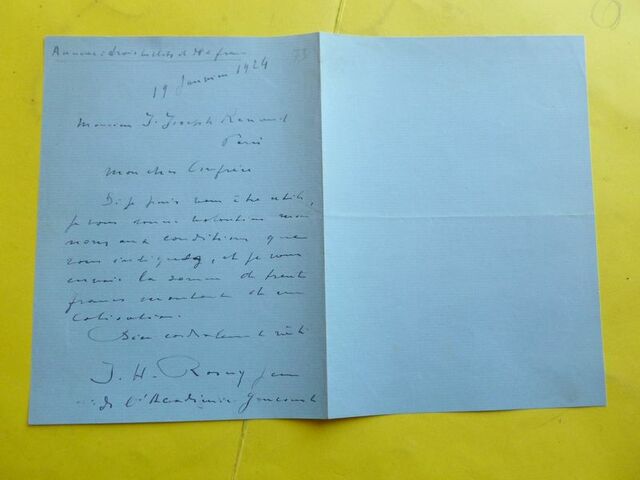 19 Janvier 1924
Monsieur J. Joseph Renaud
Paris
Mon cher Confrère
Si je puis vous être utile,
je vous donne volontiers mon
nom aux conditions que
vous indiquez, et je vous
envoie la somme de trente
francs montant de ma
cotisation.
Bien cordialement à vous
J. H. Rosny jeune
de l'Académie Goncourt